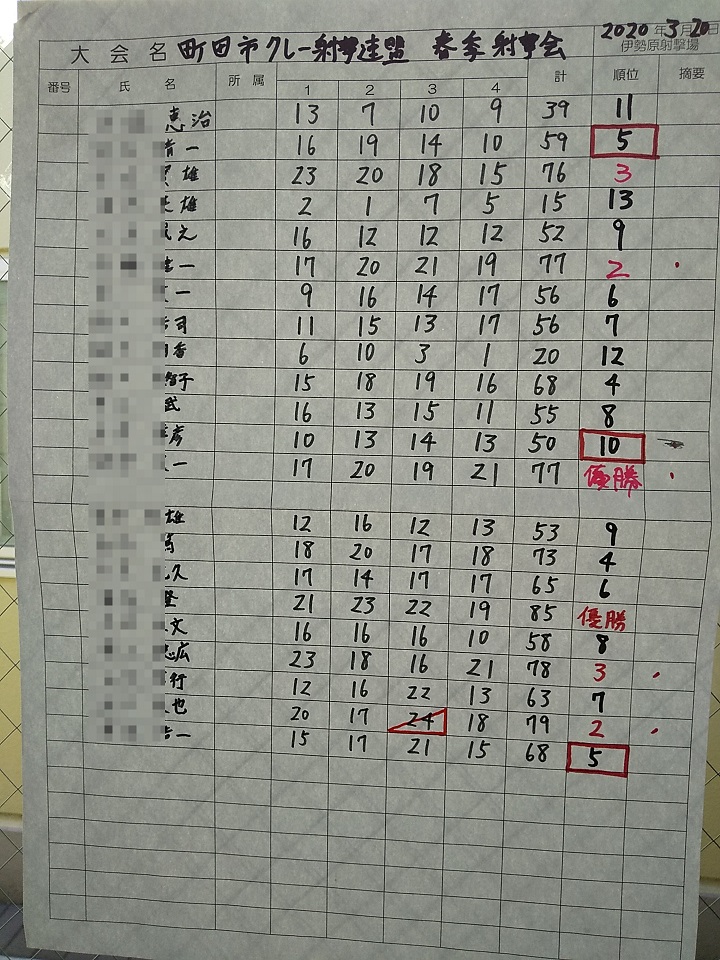 2020年3月20日
大会名 町田市クレー射撃連盟 春季射撃会 伊勢原射撃場
番号 氏名 所属 1 2 3 4 計 順位 摘要
恵治 13 7 10 9 39 11
一 16 19 14 10 59 5
雄 23 20 18 15 76 3
雄 2 1 7 5 15 13
之 16 12 12 12 52 9
一 17 20 21 19 77 2
一 9 16 14 17 56 6
司 11 15 13 17 56 7
香 6 10 3 1 20 12
子 15 18 19 16 68 4
武 16 13 15 11 55 8
彦 10 13 14 13 50 10
一 17 20 19 21 77 優勝
雄 12 16 12 13 53 9
18 20 17 18 73 4
久 17 14 17 17 65 6
登 21 23 22 19 85 優勝
文 16 16 16 10 58 8
広 23 18 16 21 78 3
行 12 16 22 13 63 7
也 20 17 24 18 79 2
一 15 17 21 15 68 5